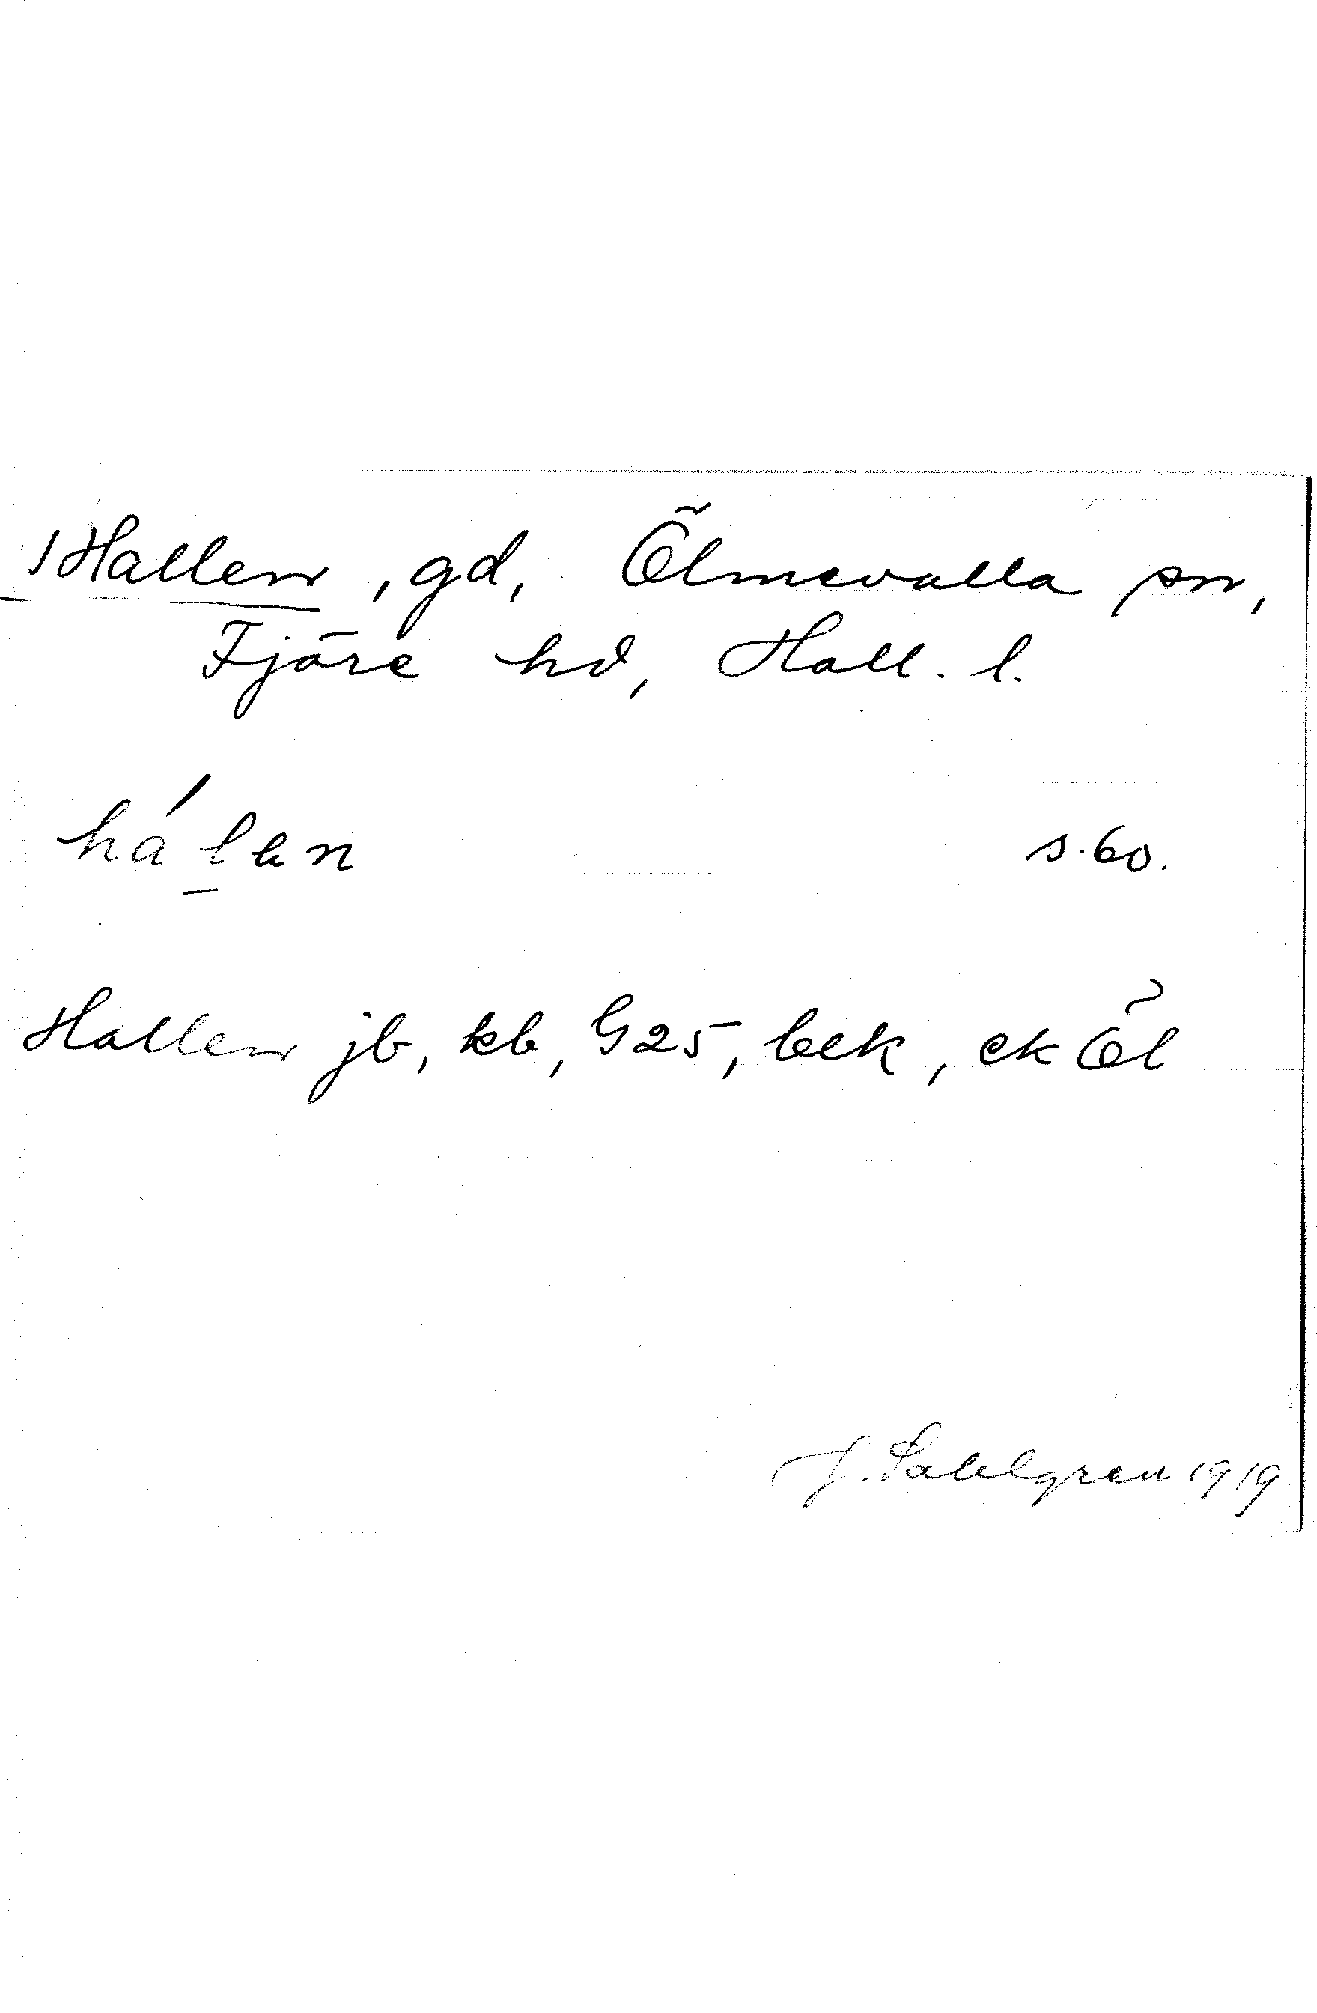 Hallen, gd, Ölmevalla sn,
Fjäre hd, Hall. l.
há'l̲en s. 60.
Hallen jb, kb, G25, bek, ek Öl
J. Sahlgren 1919